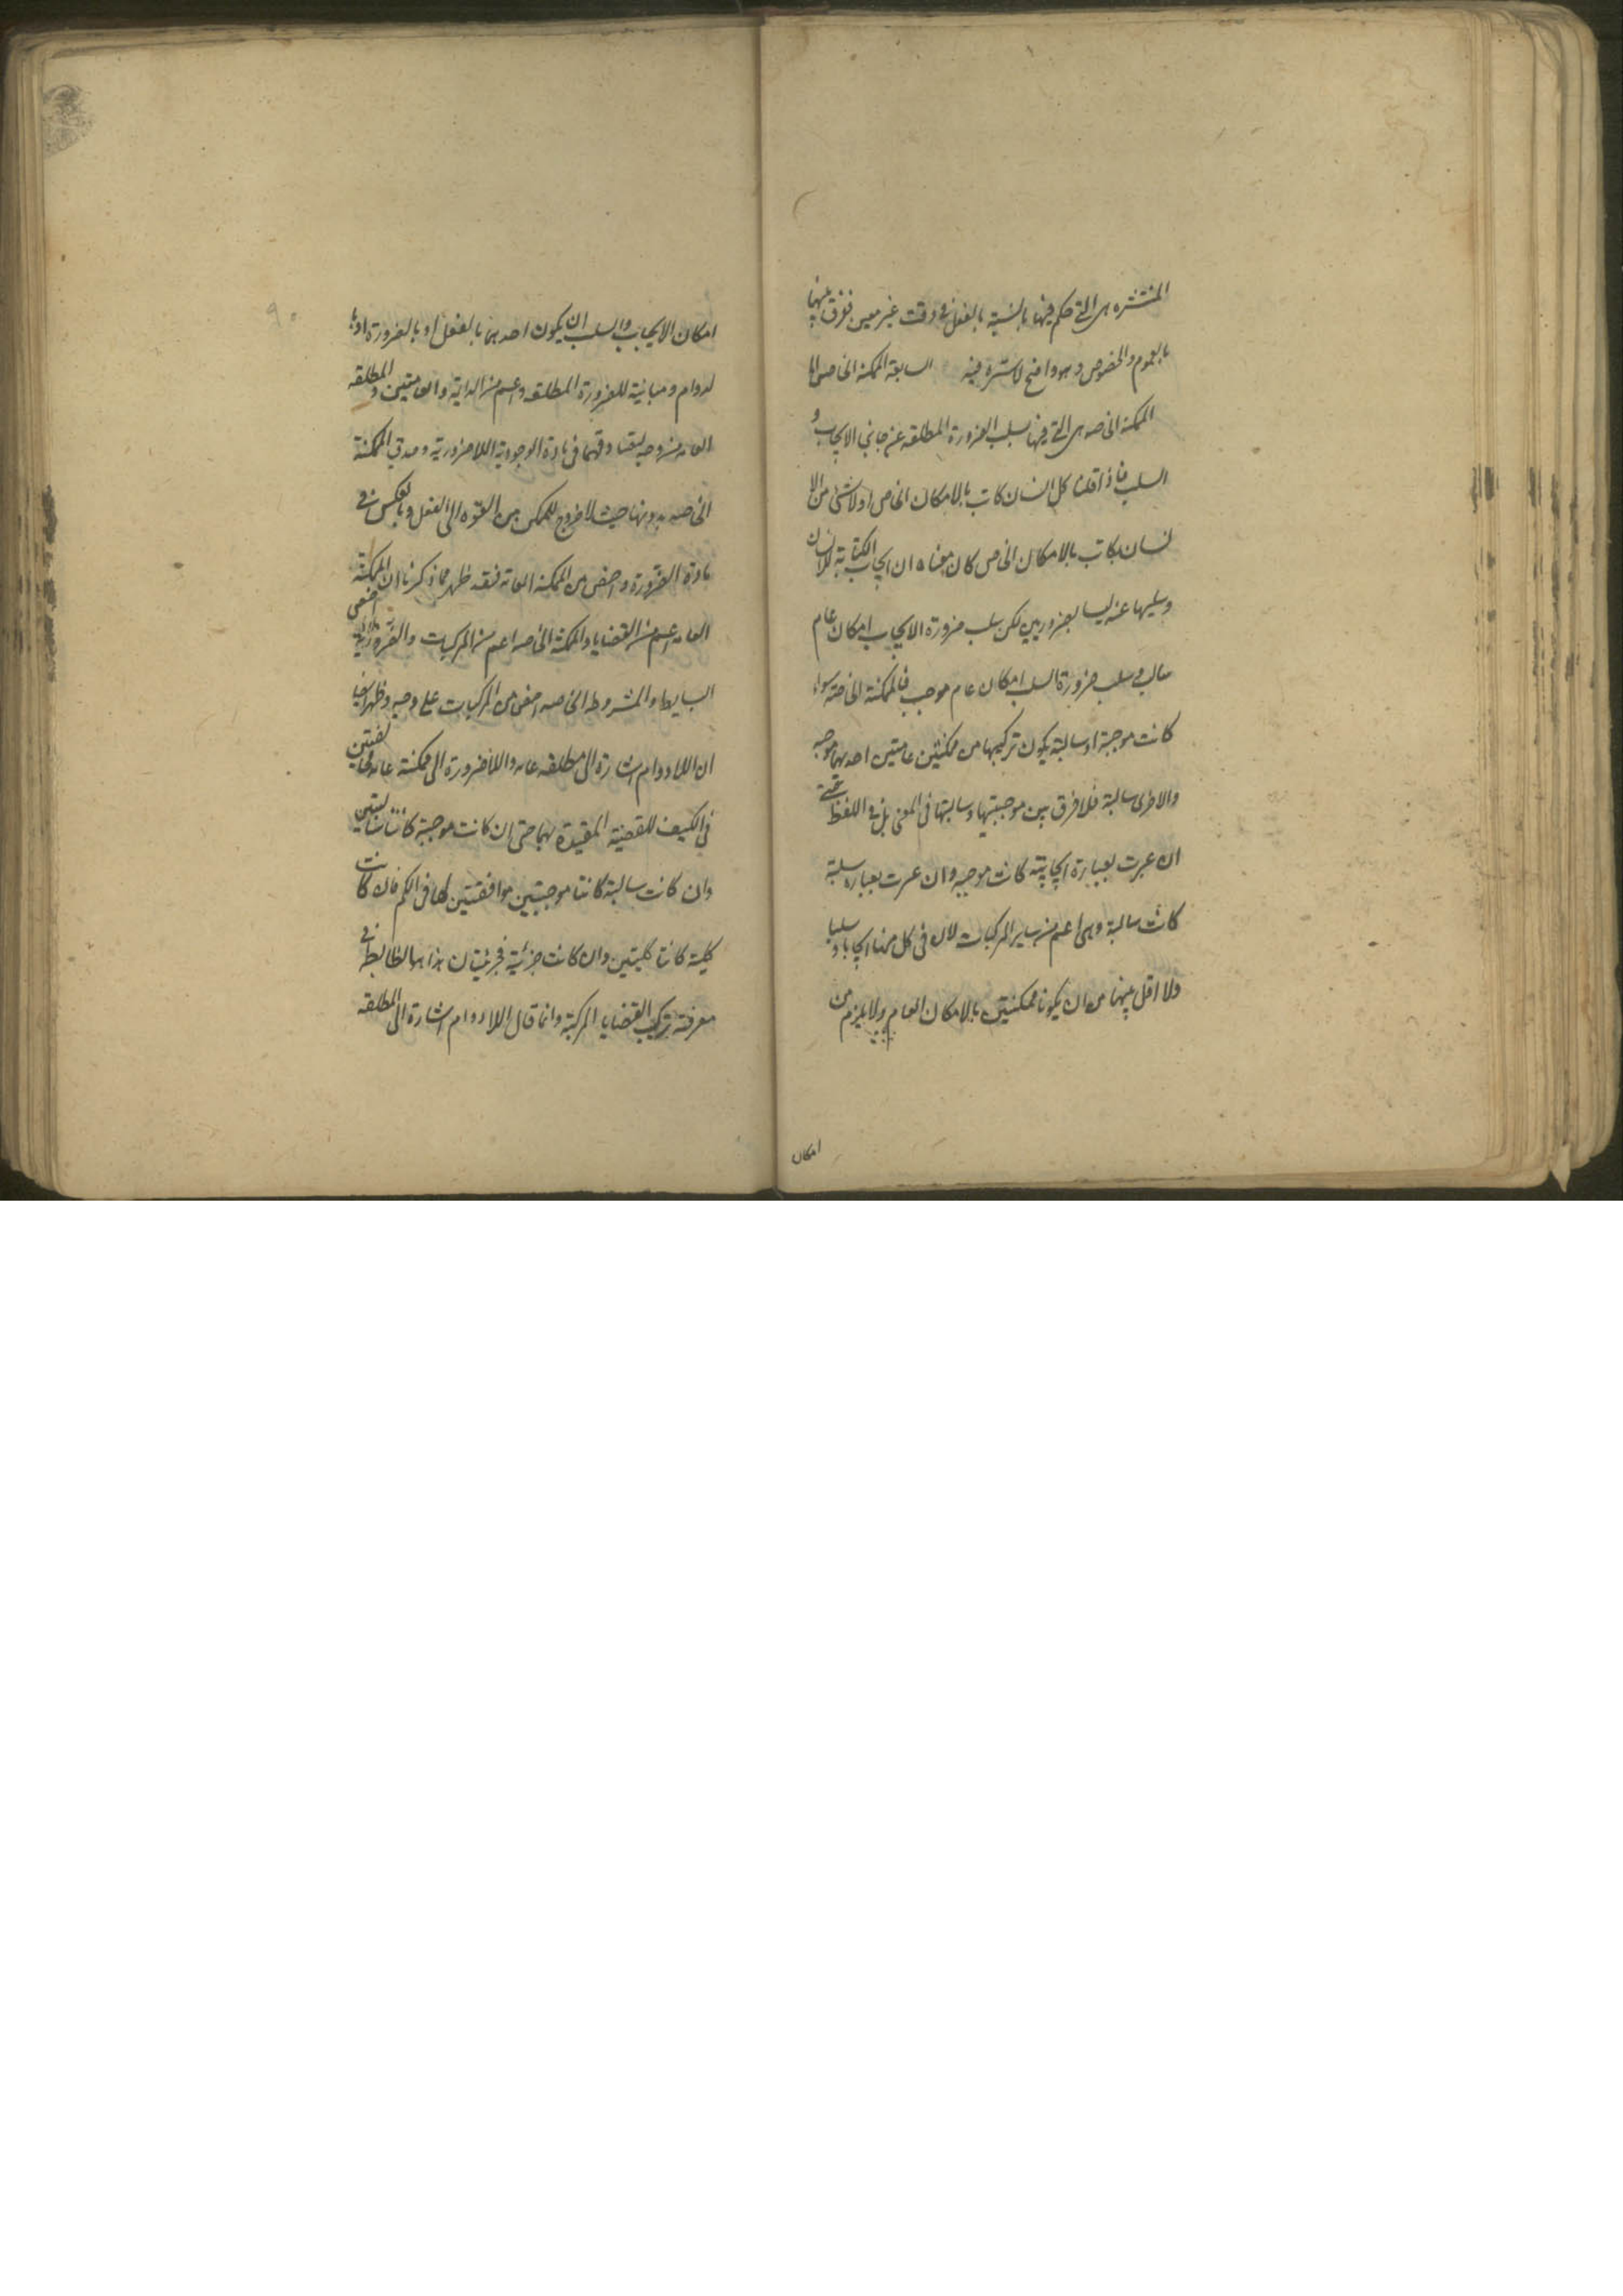 المنتشره هى التى حكم فيها بالنسبة بالفعل فى وقت غير معين ففرق بينهما
بالعموم والخصوص وهو واضح لا سترة فيه السابعة الممكنة الخاصة
الممكنة الخاصه هى التى فيها سلب الضرورة المطلقه عن جانبى الايجاب و
السلب فاذا قلنا كل انسان كاتب بالامكان الخاص او لا شئ من الا
نسان بكاتب بالامكان الخاص كان معناه ان ايجاب الكتابة للانسان
وسلبها عنه ليسا بضروريين لكن سلب ضرورة الايجاب امكان عام
سالب وسلب ضرورة السلب امكان عام موجب فالممكنة الخاصة سواء
كانت موجبة او سالبة يكون تركيبها من ممكنتين عامتين احديهما موجبه
والاخرى سالبة فلا فرق بين موجبتها وسالبتها فى المعنى بل فى اللفظ حتى
ان عبرت بعبارة ايجابية كانت موجبه وان عبرت بعبارة سلبية
كانت سالبة وهى اعم من ساير المركبات لان فى كل منها ايجابا وسلبا
ولا اقل فيهما من ان يكونا ممكنتين بالامكان العام ولا يلزم من
امكان
امكان الايجاب والسلب ان يكون احدهما بالفعل او بالضرورة او با
لدوام ومباينة للضرورة المطلقه واعم من الدايمة والعامتين والمطلقه
العامه من وجه لتصادقهما فى مادة الوجودية اللاضرورية وصدق الممكنة
الخاصه بدونها حيث لا خروج للممكن من القوه الى الفعل وبالعكس فى
مادة الضرورة واخص من الممكنة العامة فقد ظهر مما ذكرنا ان الممكنة
العامه اعم من القضايا والممكنة الخاصه اعم من المركبات والضرورية اخص
البسايط والمشروطه الخاصه اخص من المركبات على وجه وظهر ايضا
ان اللادوام اشارة الى مطلقه عامه واللاضرورة الى ممكنة عامه مخالفتين
فى الكيف للقضية المقيدة بهما حتى ان كانت موجبة كانتا سالبتين
وان كانت سالبة كانتا موجبتين موافقتين لها فى الكم فان كانت
كلية كانتا كليتين وان كانت جزئية فجزئيتان هذا هو الضابطة فى
معرفة تركيب القضايا المركبة وانما قال اللادوام اشارة الى المطلقه